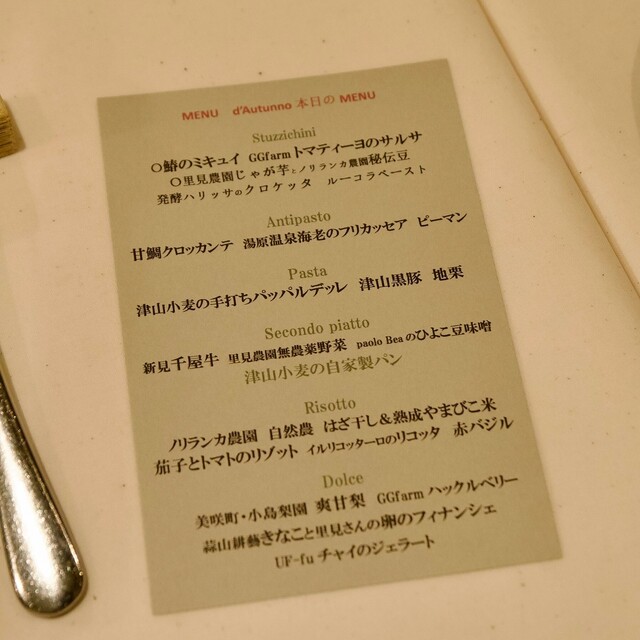 MENU d'Autunno 本日の MENU
Stuzzichini
○鰆のミキュイ GGfarm トマティーヨのサルサ
○里見農園じゃが芋とノリランカ農園秘伝豆
発酵ハリッサのクロケッタ ルーコラペースト
Antipasto
甘鯛クロッカンテ 湯原温泉海老のフリカッセア ピーマン
Pasta
津山小麦の手打ちパッパルデッレ 津山黒豚 地栗
Secondo piatto
新見千屋牛 里見農園無農薬野菜 paolo Bea のひよこ豆味噌
津山小麦の自家製パン
Risotto
ノリランカ農園 自然農 はざ干し&熟成やまびこ米
茄子とトマトのリゾット イルリコッターロのリコッタ 赤バジル
Dolce
美咲町・小島梨園 爽甘梨 GGfarm ハックルベリー
蒜山耕藝きなこと里見さんの卵のフィナンシェ
UF-fu チャイのジェラート